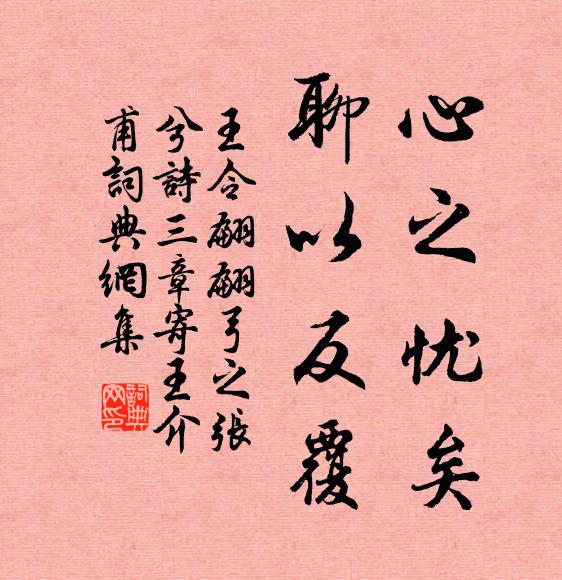 心之忧矣
聊以反覆
王令翩翩弓之張
兮詩三章寄王介
甫詞典網集
詞典
网印